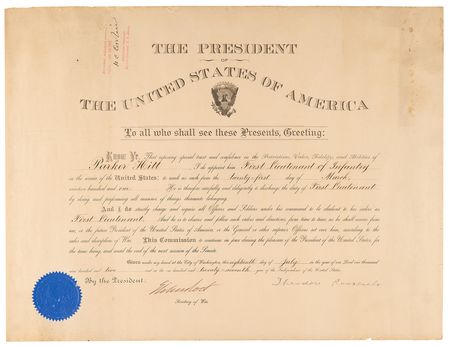 THE PRESIDENT
OF
THE UNITED STATES OF AMERICA
To all who shall see these Presents, Greeting:
Know Ye, That reposing special trust and confidence in the Patriotism, Valor, Fidelity and Abilities of
Parker Hitt I do appoint him First Lieutenant of Infantry
in the service of the United States: to rank as such from the twenty-first day of March,
nineteen hundred and one. He is therefore carefully and diligently to discharge the duty of First Lieutenant
by doing and performing all manner of things thereunto belonging.
And I do strictly charge and require all Officers and Soldiers under his command to be obedient to his orders as
First Lieutenant. And he is to observe and follow such orders and directions, from time to time, as he shall receive from
me, or the future President of the United States of America, or the General or other superior Officers set over him, according to the
rules and discipline of War. This Commission to continue in force during the pleasure of the President of the United States, for
the time being, and until the end of the next session of the Senate.
Given under my hand at the City of Washington, this eighteenth day of July in the year of our Lord one thousand
nine hundred and two and in the one hundred and twenty-seventh year of the Independence of the United States.
By the President:
Elihu Root
Theodore Roosevelt
Secretary of War.